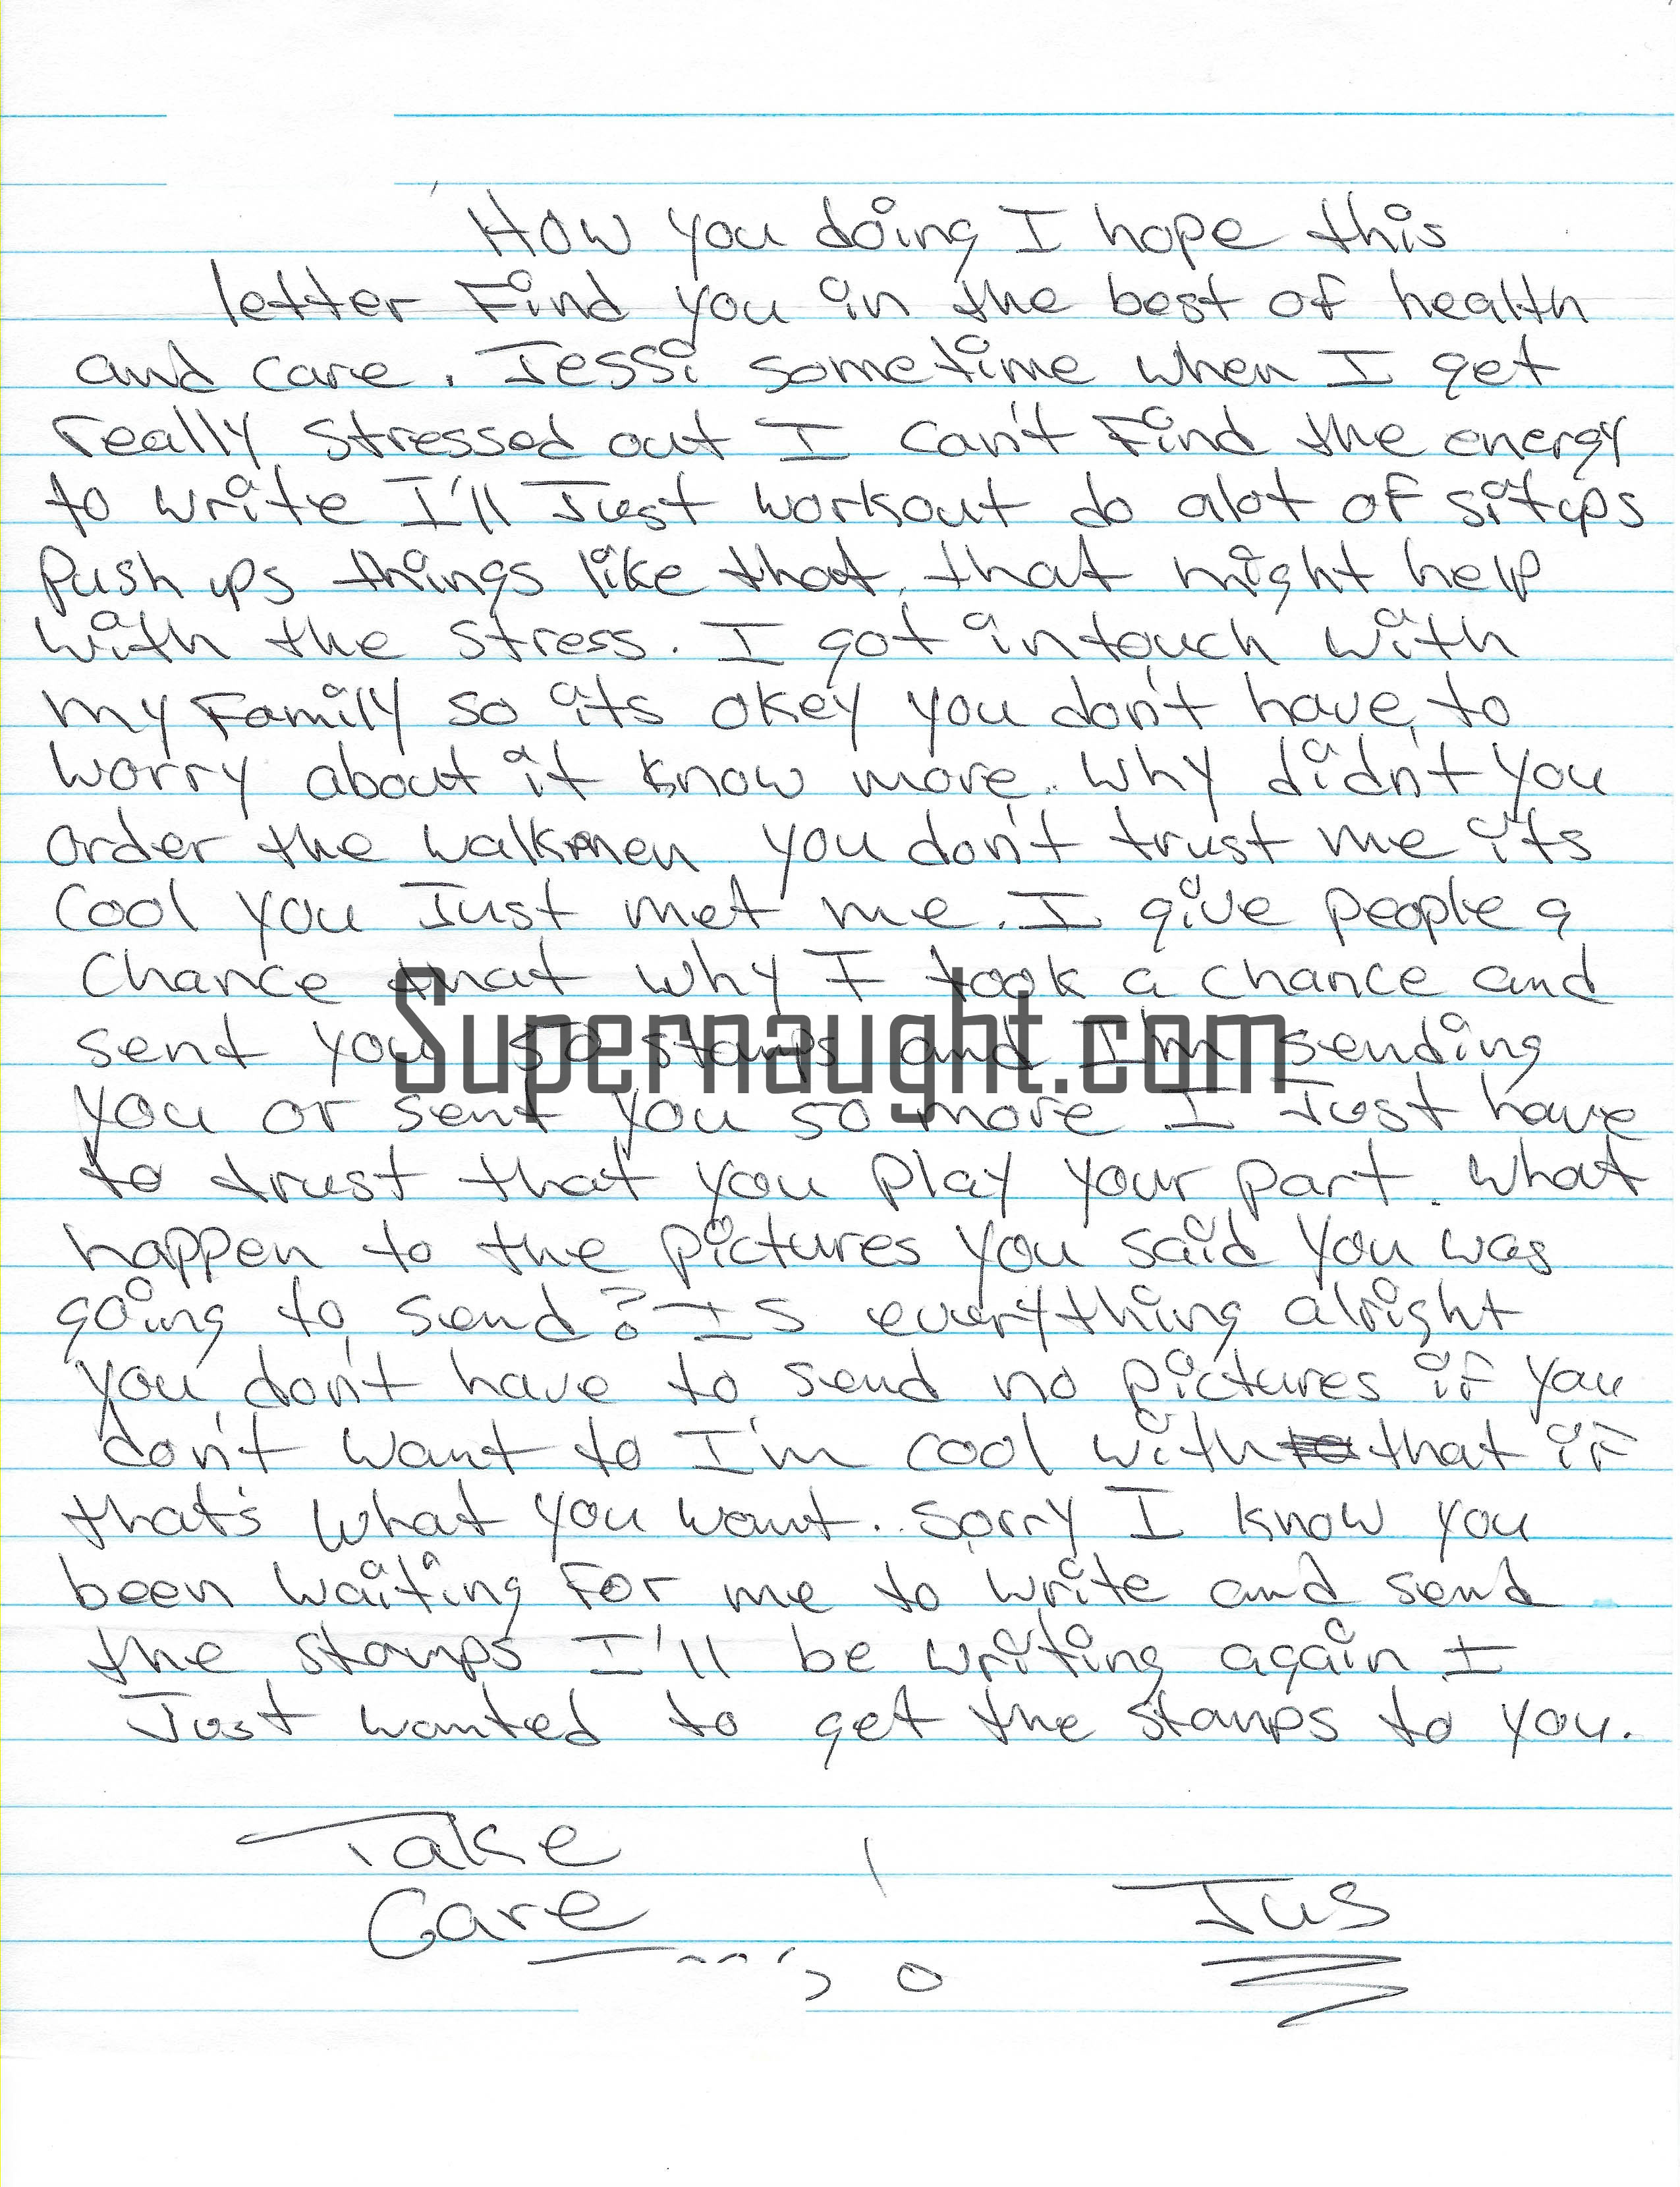 How you doing I hope this
letter Find you in the best of health
and care. Jessi sometime when I get
really stressed out I can't Find the energy
to write I'll Just workout do alot of situps
Push ups things like that, that might help
with the stress. I got intouch with
my Family so its okey you don't have to
worry about it know more. Why didn't you
order the walkmen you don't trust me its
cool you Just met me. I give people a
chance that why I took a chance and
sent you 50 stamps and I'm sending
you or sent you 50 more I Just have
to trust that you play your part. what
happen to the pictures you said you was
going to send? Is everything alright
you don't have to send no pictures if you
don't want to I'm cool with that if
that's what you want. Sorry I know you
been waiting For me to write and send
the stamps I'll be writing again I
Just wanted to get the stamps to you.
Take
Care
Jus
Supernaught.com